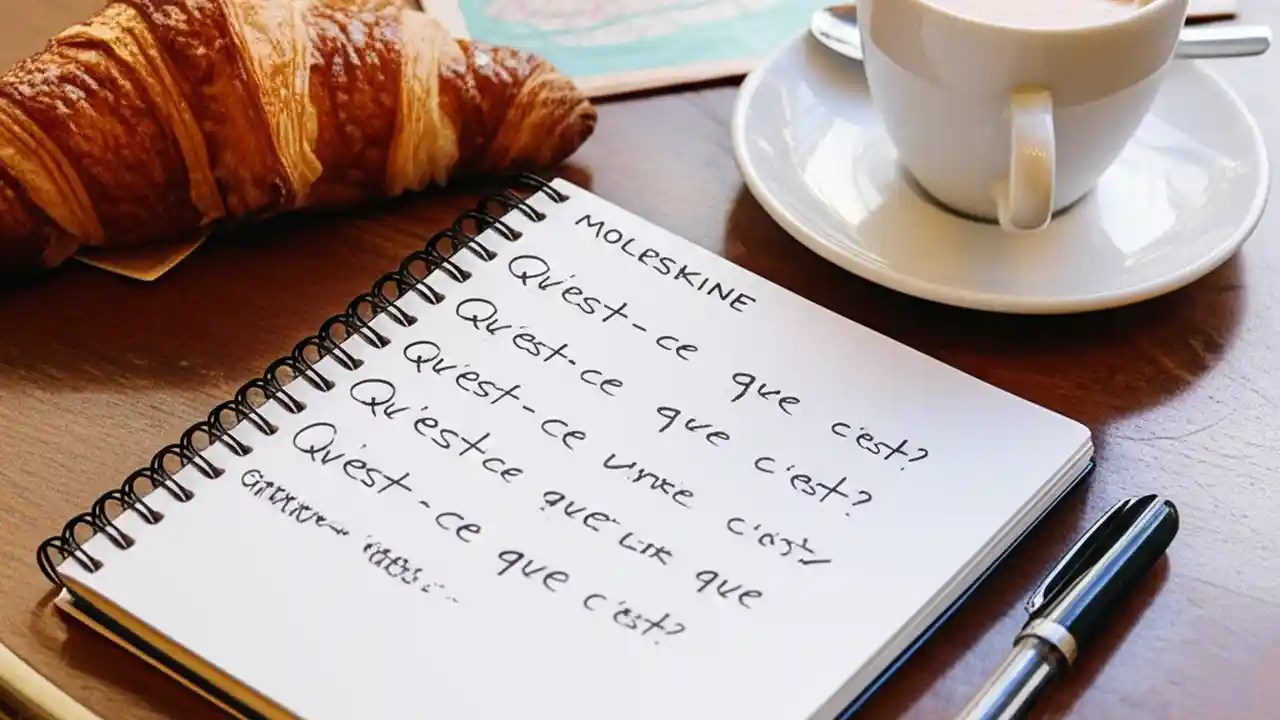 MOLESKINE
Qu'est-ce que c'est?
Qu'est-ce que c'est?
Qu'est-ce c'est
Qu'est ce que que
Qu'est-ce que c'est?